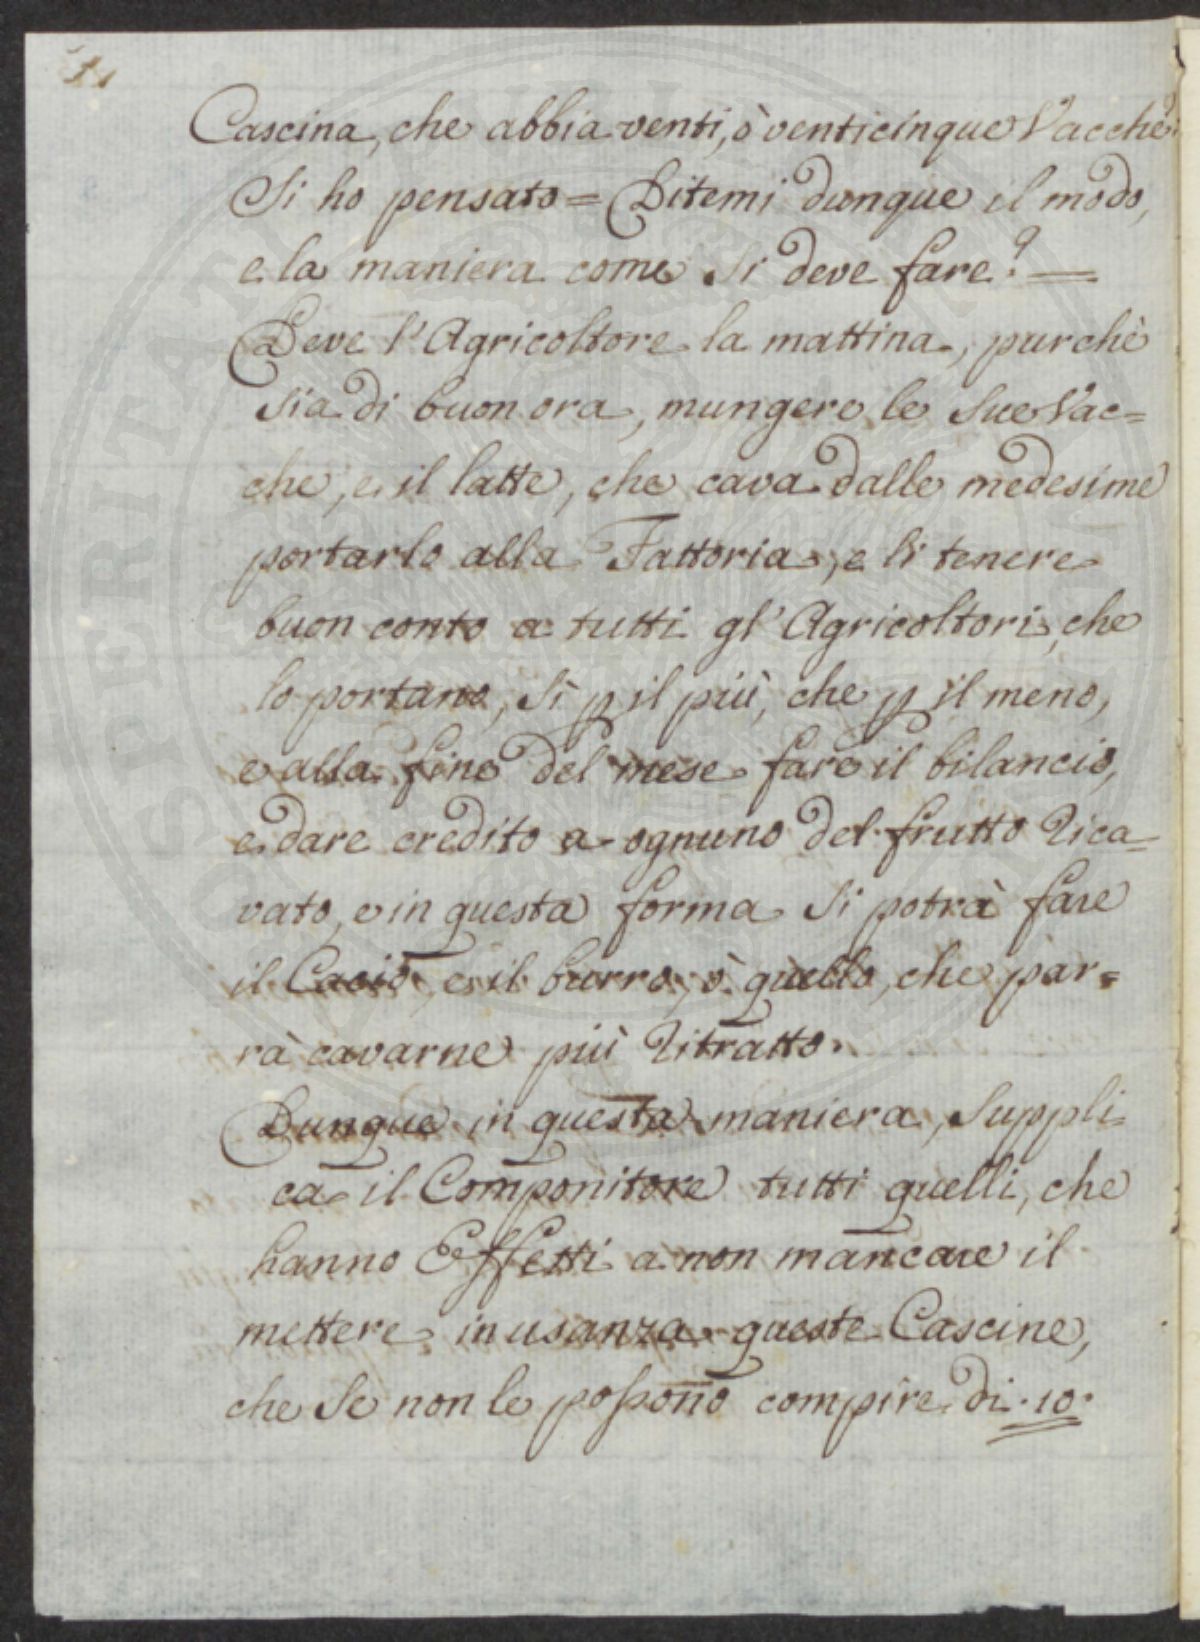 Cascina, che abbia venti, ò venticinque Vacche?
Si ho pensato = Ditemi dunque il modo,
e la maniera come si deve fare? =
Deve l'Agricoltore la mattina, purchè
sia di buon ora, mungere le sue Vac=
che, e il latte, che cava dalle medesime
portarlo alla Fattoria, e li tenere
buon conto a tutti gl'Agricoltori, che
lo portano, sì p il più, che p il meno,
e alla fine del mese fare il bilancio,
e dare credito a ognuno del frutto rica=
vato, e in questa forma si potrà fare
il Cacio, e il burro, ò quello, che par=
rà cavarne più ritratto.
Dunque in questa maniera, suppli=
ca il Componitore tutti quelli, che
hanno Effetti a non mancare il
mettere in usanza queste Cascine,
che se non le possono compire di . 10 .